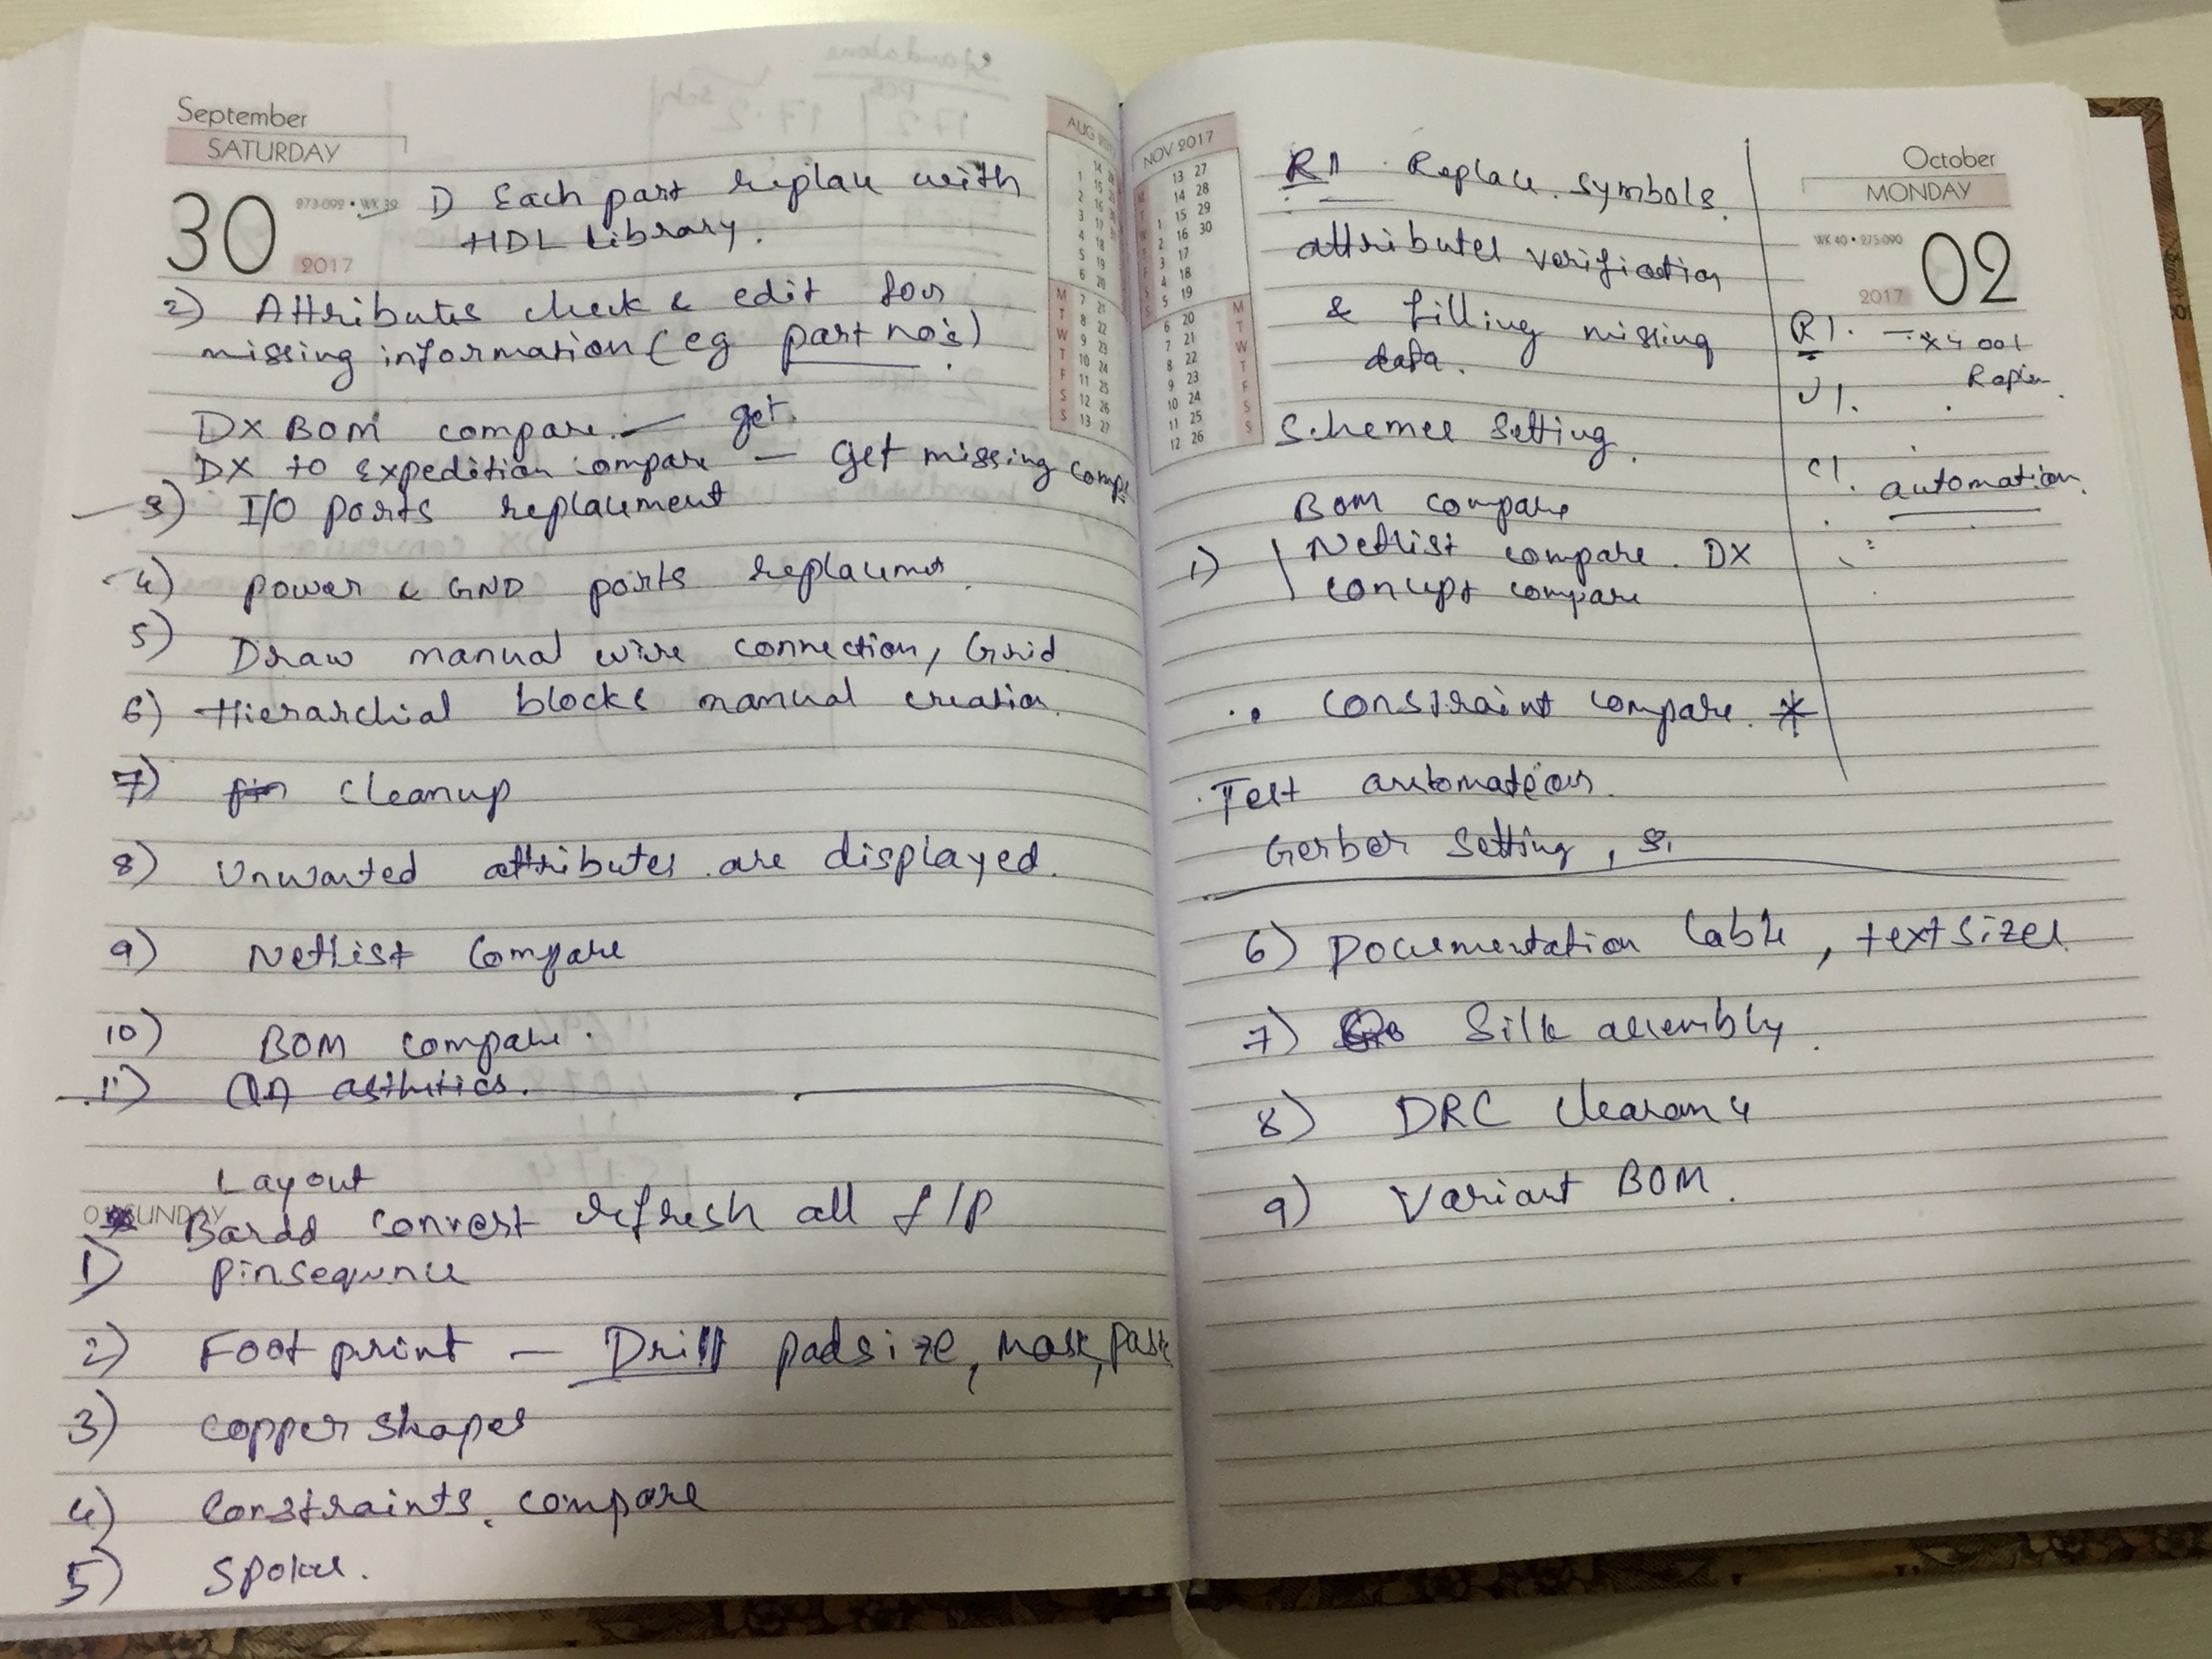 September
SATURDAY
30
273-092 • WK 39
2017
1) Each part replace with
HDL Library.
2) Attributes check & edit for
missing information (eg part no's)
DX BOM compare. — get.
DX to Expedition compare — Get missing comp.
3) I/O ports replacement
4) Power & GND ports replacement
5) Draw manual wire connection, Grid
6) Hierarchial blocks manual creation.
7) cleanup
8) Unwanted attributes are displayed.
9) Netlist Compare
10) BOM compare.
11) QA asthitics.
Layout
SUNDAY
Borad convert refresh all f/p
1) Pinsequnce
2) Foot print — Drill padsize, mask, past
3) copper shapes
4) Constraints. compare
5) Spokes.
AUG
NOV 2017
R1 Replace symbols.
attributes verification
& filling missing
data.
Schemee Setting.
BOM compare
1) Netlist compare. DX
concept compare
constraint compare. *
Test automation.
Gerber Setting,
6) Documentation table, text sizes
7) Silk assembly.
8) DRC clearance
9) Variant BOM.
October
MONDAY
WK 40 • 275-090
02
2017
R1.
U1.
C1. automation.